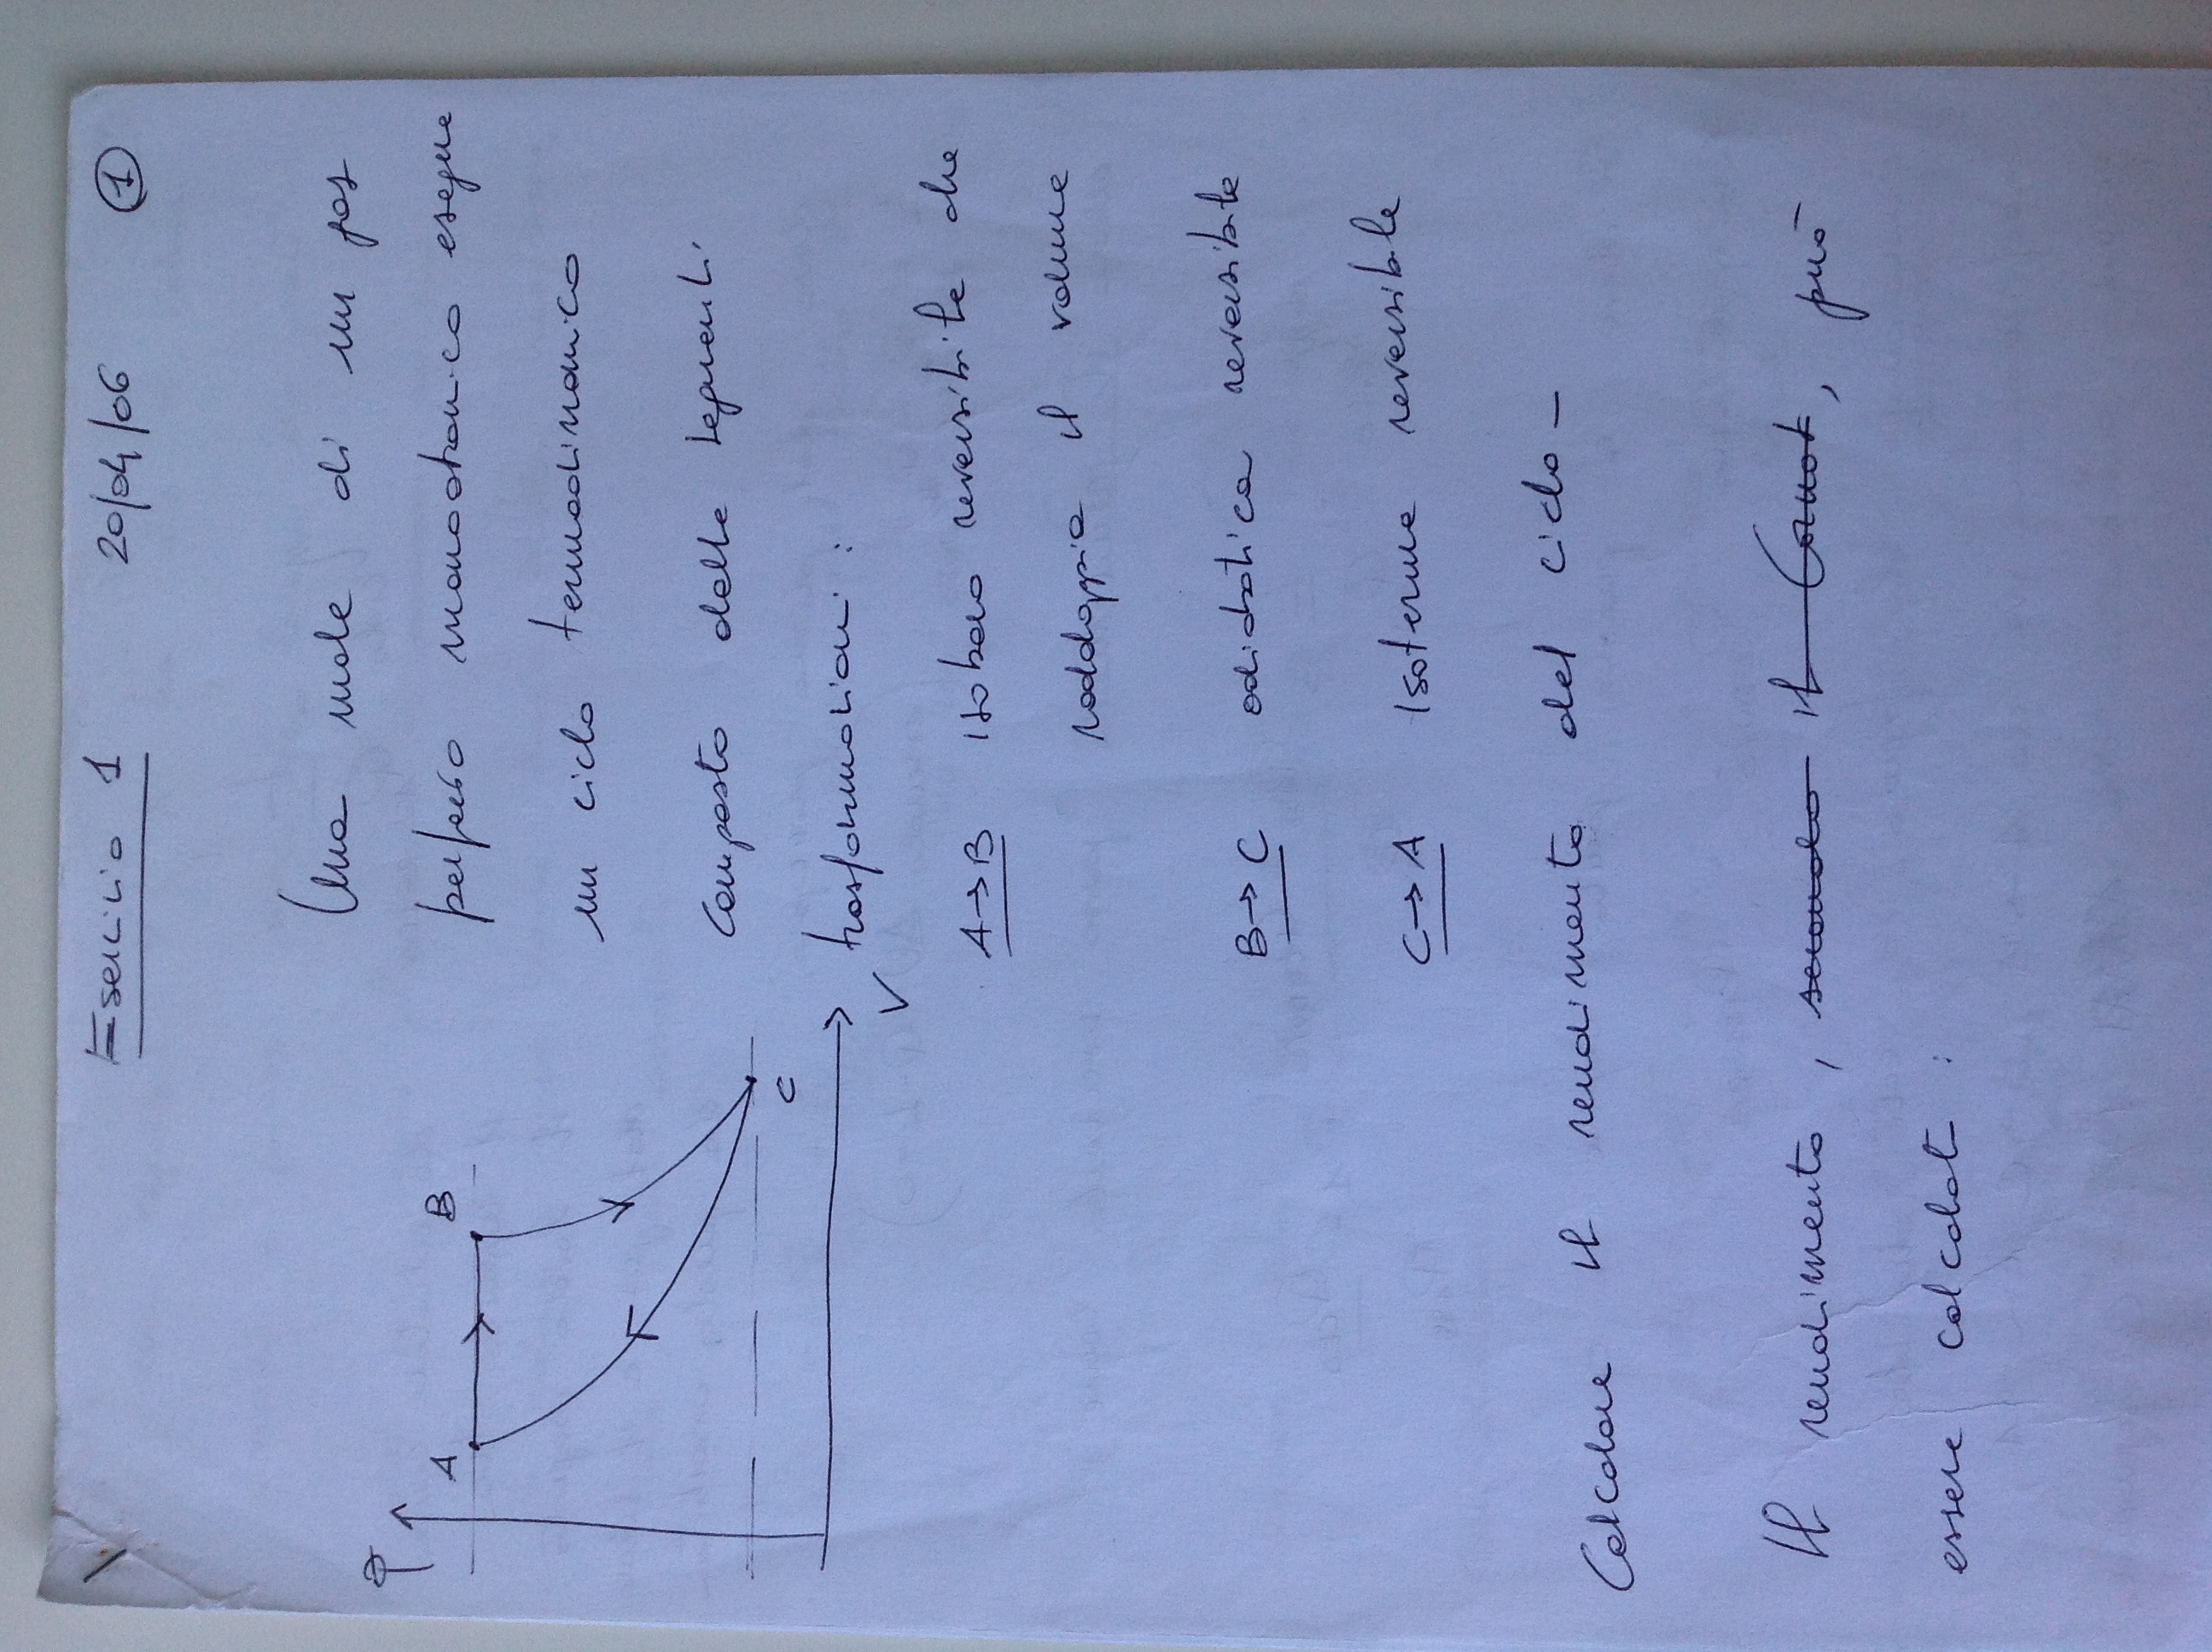 Esercizio 1 20/04/06 1
Una mole di un gas
P
A B
perfetto monoatomico esegue
un ciclo termodinamico
composto dalle seguenti
C
trasformazioni :
V
A→B isobara reversibile che
raddoppia il volume
B→C adiabatica reversibile
C→A Isoterma reversibile
Calcolare il rendimento del ciclo -
Il rendimento, secondo il Carnot, può
essere calcolato :